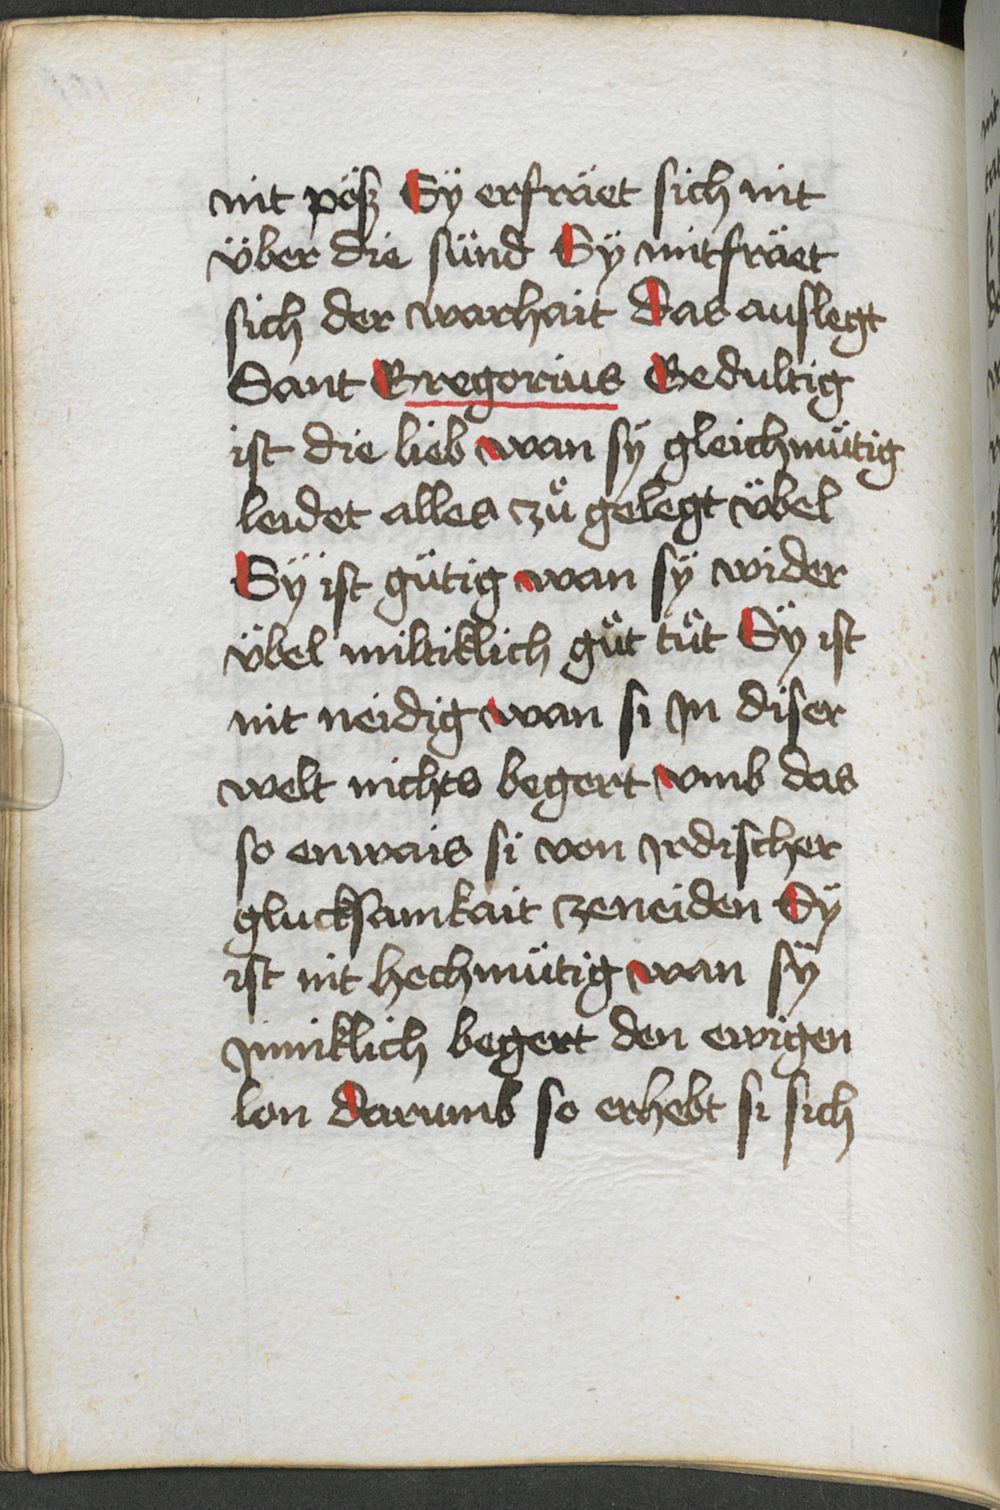 nit pösz Sÿ erfräet sich nit
über die sünd Sÿ mitfräet
sich der warhait Das auslegt
Sant Gregorius Gedultig
ist die lieb wan sÿ gleichmütig
leidet alles zů gelegt übel
Sÿ ist gütig wan sÿ wider
übel miltiklich gůt tůt Sÿ ist
nit neidig wan si jn diser
welt nichts begert vmb das
so enwais si von jrdischer
glucksamkait zeneiden Sÿ
ist nit hochmütig wan sÿ
jnniklich begert den ewigen
lon Darumb so erhebt si sich